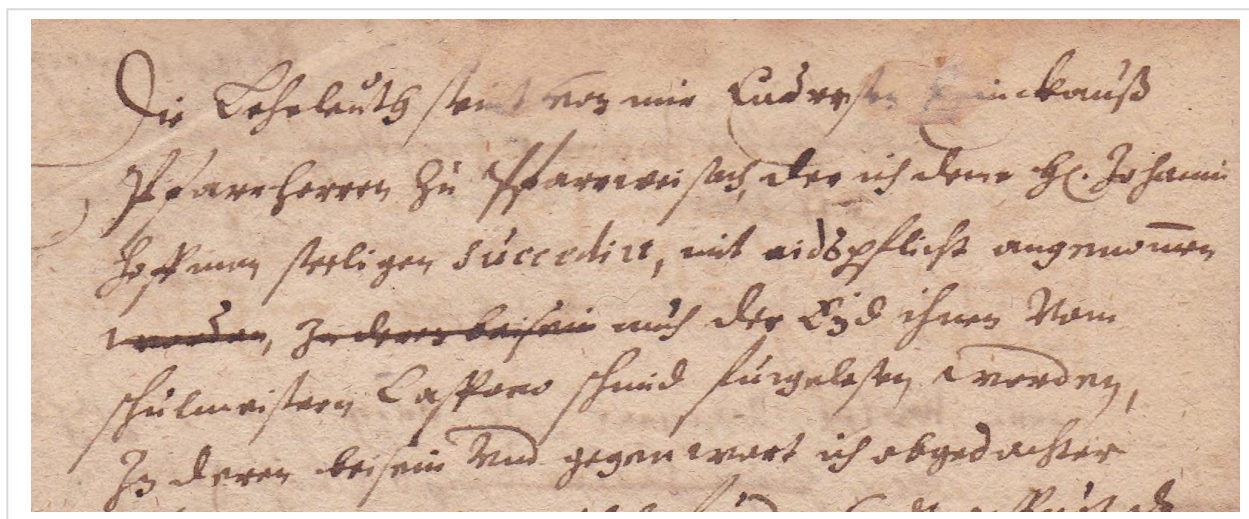 Die Leheleuth seint von mir Endressen
Pfarrherren zu Pfarrweisach, der ich deme H. Johann
Hoffman seeligen succedirt, mit aidspflicht angenom̅en
worden, In deren beisein auch der Eid ihnen Vom
schulmeistern Casparo schmid fürgelesen worden,
In deren beisein Vnd gegenwart ich obgedachter